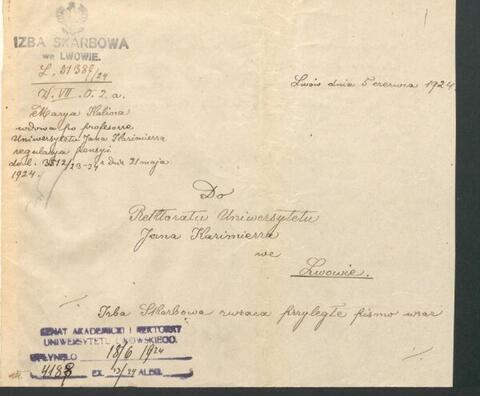 IZBA SKARBOWA
we LWOWIE.
L. 21389/24
W. VII. O. 2. a.
Marya Kalina
wdowa po profesorze
Uniwersytetu Jana Kazimierza
regulacya pensyi
do l. 3512/23-24 z dnia 21 maja
1924.
Lwów dnia 5 czerwca 1924.
Do
Rektoratu Uniwersytetu
Jana Kazimierza
we
Lwowie.
Izba Skarbowa zwraca przyległe pismo wraz
SENAT AKADEMICKI I REKTORAT
UNIWERSYTETU LWOWSKIEGO.
WPŁYNĘŁO 18/6 1924
4188 EX. 23/24 ALEG.